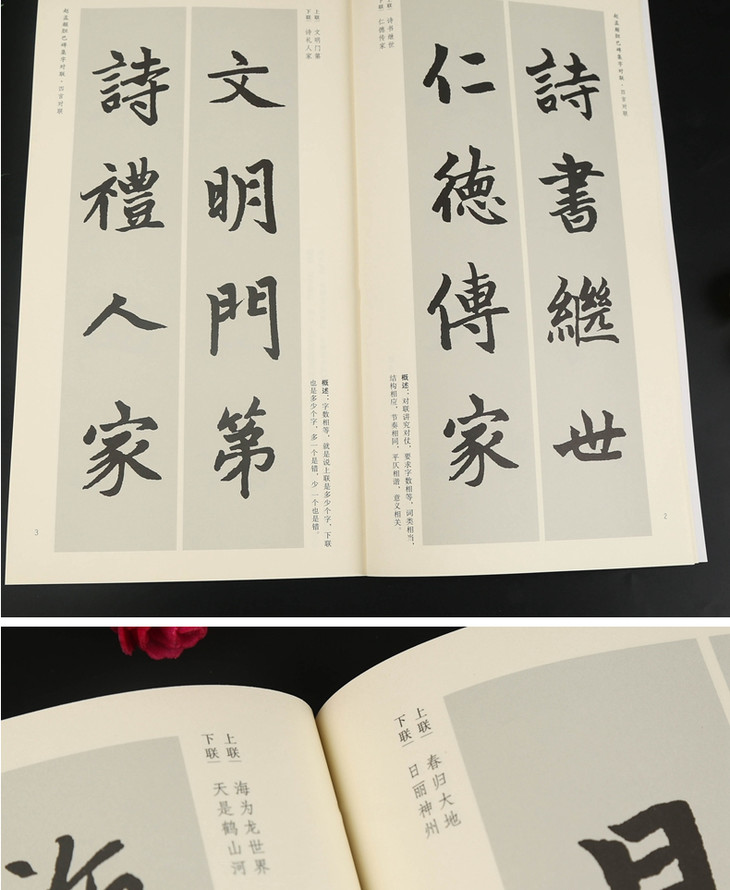 赵孟頫胆巴碑集字对联·四言对联
詩書繼世
仁德傳家
上联 诗书继世
下联 仁德传家
概述：对联讲究对仗，要求字数相等，词类相当，
结构相应，节奏相同，平仄相谐，意义相关。
2
上联 文明门第
下联 诗礼人家
文明門第
詩禮人家
概述：字数相等，就是说上联是多少个字，下联
也是多少个字，多一个是错，少一个也是错。
赵孟頫胆巴碑集字对联·四言对联
3
上联 春归大地
下联 日丽神州
上联 海为龙世界
下联 天是鹤山河